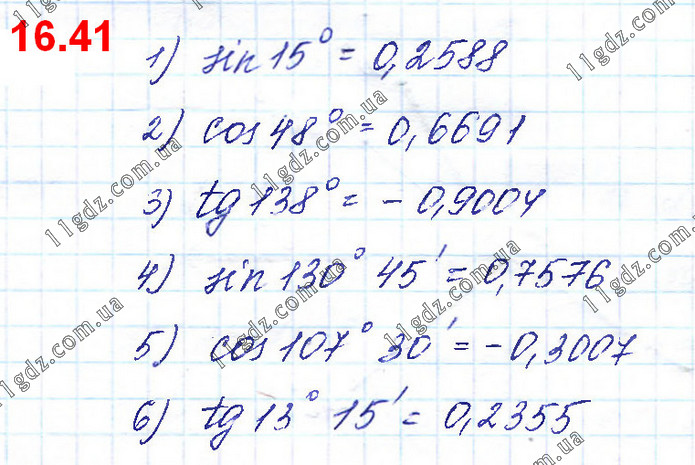 16.41
1) sin 15° = 0,2588
2) cos 48° = 0,6691
3) tg 138° = - 0,9004
4) sin 130° 45' = 0,7576
5) cos 107° 30' = - 0,3007
6) tg 13° 15' = 0,2355
11gdz.com.ua
11gdz.com.ua
11gdz.com.ua
11gdz.com.ua
11gdz.com.ua
11gdz.com.ua
11gdz.com.ua
11gdz.com.ua